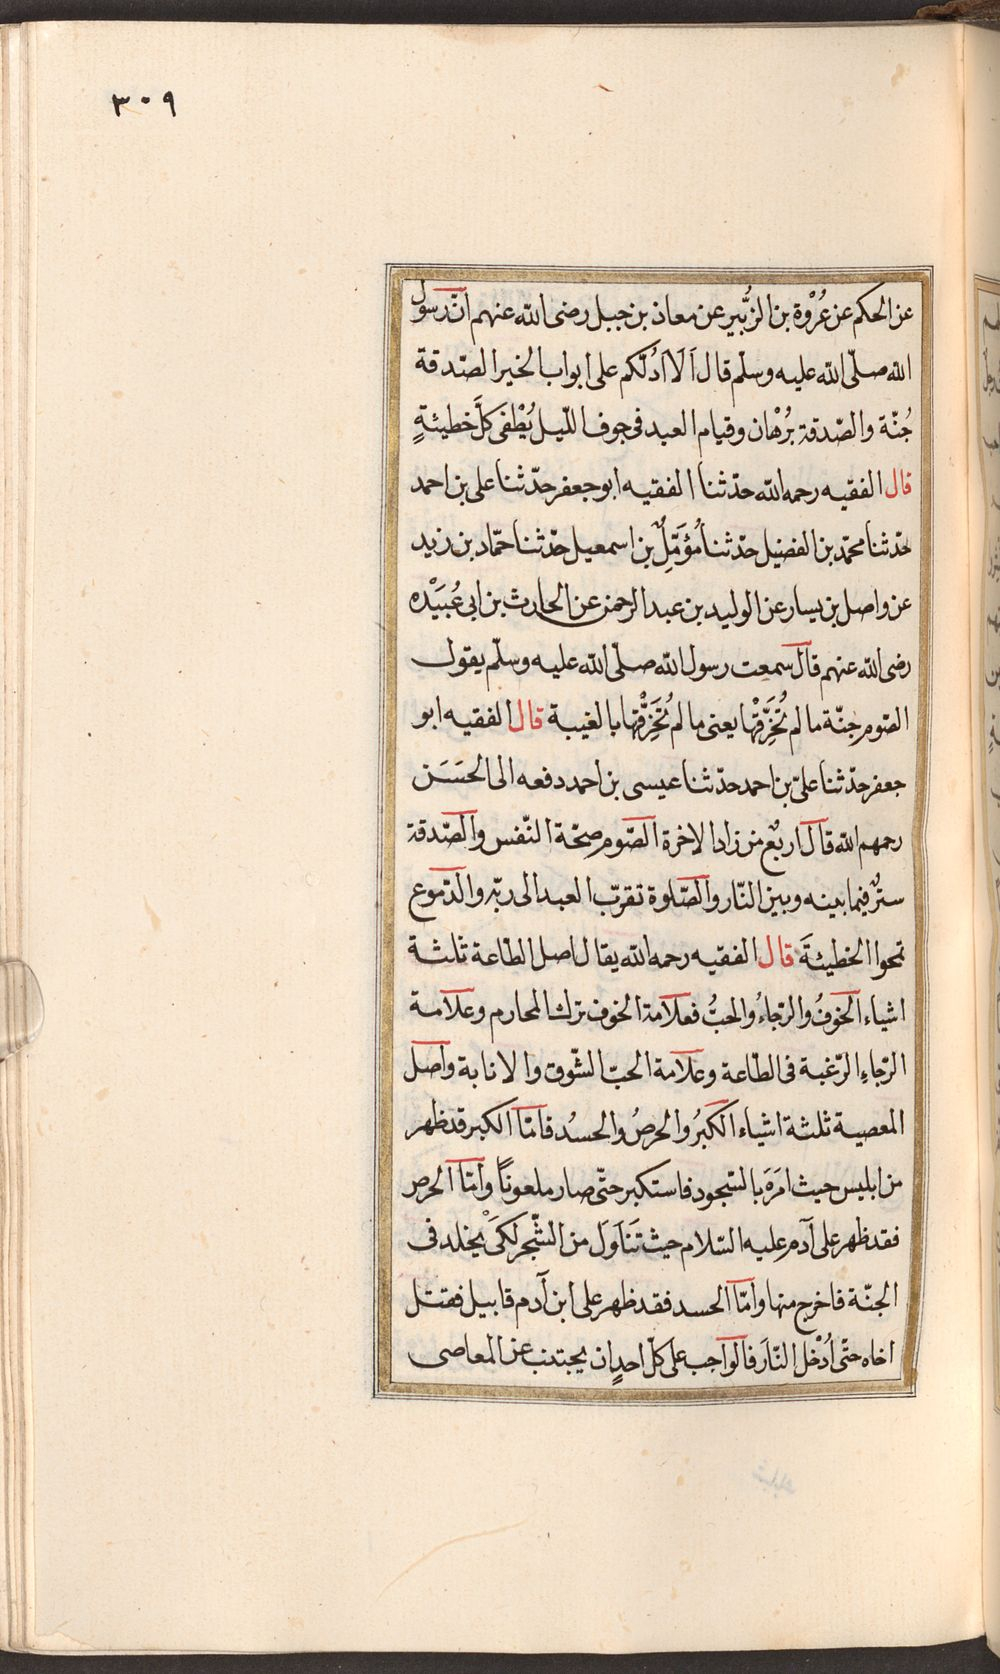 ٣٠٩
عن الحكم عن عُرْوة بن الزُّبير عن معاذ بن جبل رضى الله عنهم انّ رسول
الله صلّى الله عليه وسلّم قال اَلَا اَدُلّكم على ابواب الخير الصّدقة
جُنّة والصّدقة بُرْهان وقيام العبد فى جوف اللّيل يُطْفى كلَّ خطيئةٍ
قال الفقيه رحمه الله حدّثنا الفقيه ابو جعفر حدّثنا على بن احمد
حدّثنا محمّد بن الفضيل حدّثنا مُؤَمَّلُ بن اسمعيل حدّثنا حمّاد بن زيد
عن واصل بن يسار عن الوليد بن عبد الرحمن عن الحارث بن ابى عُبَيْده
رضى الله عنهم قال سمعت رسول الله صلّى الله عليه وسلّم يقول
الصّوم جنّة ما لم تُخَرِّقْها يعنى ما لم تُخَرِّقْها بالغيبة قال الفقيه ابو
جعفر حدّثنا علىّ بن احمد حدّثنا عيسى بن احمد دفعه الى الحسَن
رحمهم الله قال اربعٌ من زاد الاخرة الصّوم صحّة النّفس والصّدقة
سترٌ فيما بينه وبين النّار والصّلوة تقرّب العبد الى ربّه والدّموع
تمحوا الخطيئةَ قال الفقيه رحمه الله يقال اصل الطّاعة ثلثة
اشياء الخوفُ والرّجاءُ والحبُّ فعلامة الخوف ترك المحارم وعلامة
الرّجاءِ الرّغبة فى الطّاعة وعلامة الحبّ الشّوق والانابة واصل
المعصية ثلثة اشياء الكبرُ والحرصُ والحسدُ فامّا الكبر قد ظهر
من ابليس حيث امَرَه بالسّجود فاستكبر حتّى صار ملعونًا وامّا الحرص
فقد ظهر على آدم عليه السّلام حيث تَنَاوَل من الشّجر لكَىْ يخلد فى
الجنّة فاخرج منها وامّا الحسد فقد ظهر على ابن آدم قابيل فقتل
اخاه حتّى اُدْخل النّارَ فالواجب على كلّ احدٍ ان يجتنب عن المعاصى